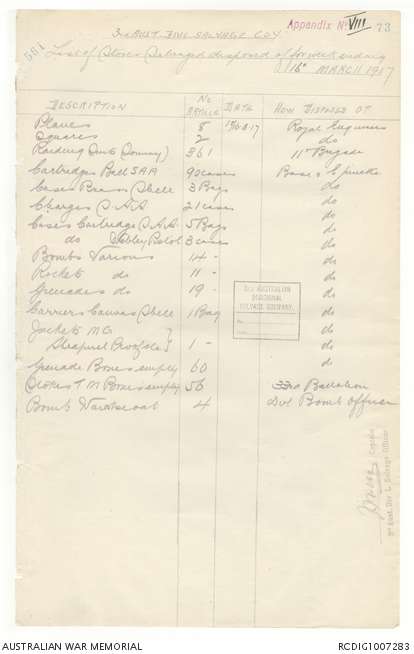 Appendix No VIII 73
3rd AUST DIVL SALVAGE COY.
List of Stores Salvaged disposed of for week ending
16th MARCH 1917
DESCRIPTION No ARTICLE DATE HOW DISPOSED OF
Planes 8 Royal Engineers
Squares 2 do
Raiding Suits (Dummy) 361 11th Brigade
Cartridges Ball SAA 90 cases
Cases Brass Shell 3 Bags do
Charges S.A.A 21 cases do
Cases Cartridge S.A.A. 5 Bags do
do Webley Pistol 3 cases do
Bombs Various 14 - do
Rockets do 11 - do
Grenades do 19 - do
Carriers Canvas Shell 1 Bag do
Jackets MG }
Shrapnel Proof } 1 - do
Grenade Boxes empty 60 do
Stokes T M Boxes empty 56 33rd Battalion
Bomb Waistcoat 4 Divl Bomb Officer
3RD AUSTRALIAN
DIVISIONAL
SALVAGE COMPANY.
Captain
3rd Aust. Div'l. Salvage Officer
AUSTRALIAN WAR MEMORIAL RCDIG1007283